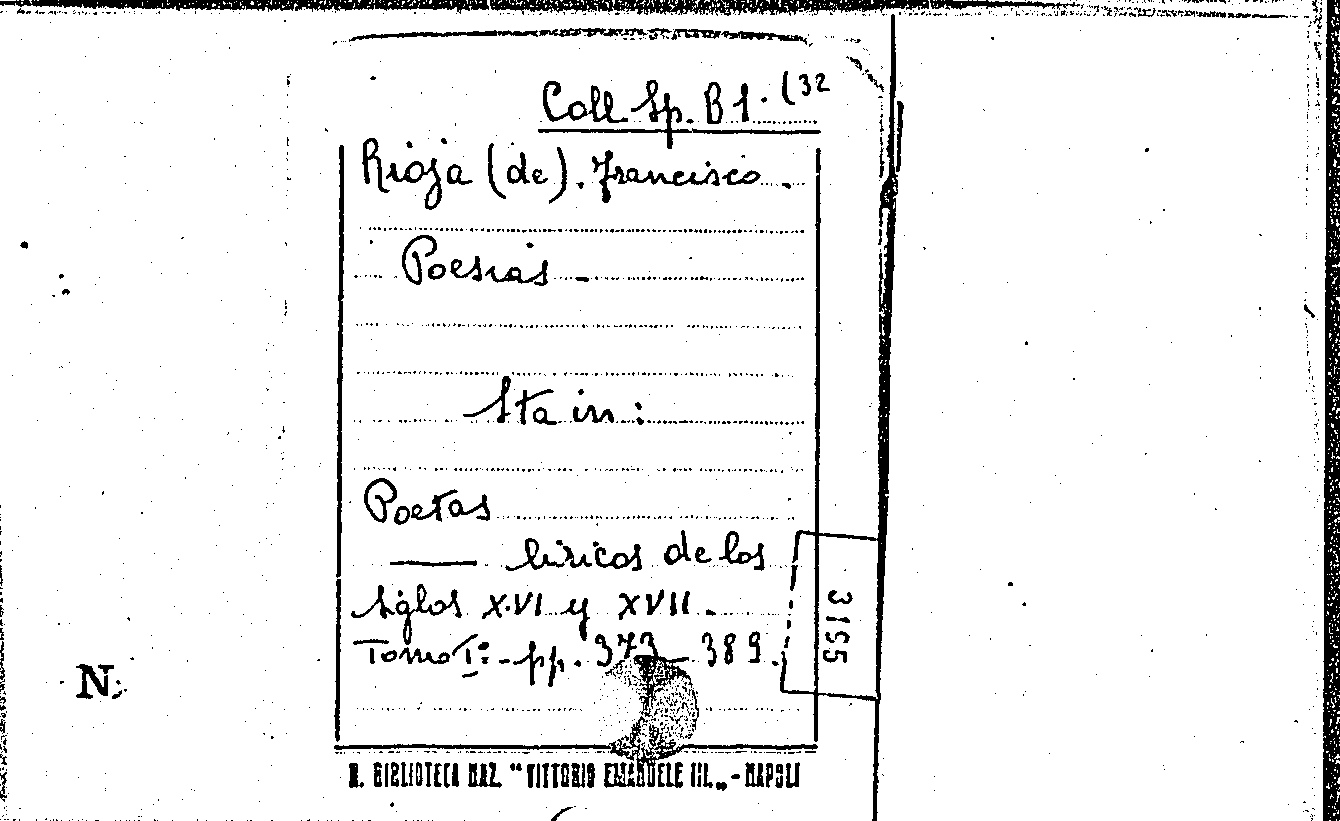 Coll. Sp. B 1. (32
Rioja (de). Francisco.
Poesias -
Sta in:
Poetas
—— liricos de los
siglos XVI y XVII.
Tomo I° - pp. 373 - 389.
3195
N.
R. BIBLIOTECA NAZ. "VITTORIO EMANUELE III." - NAPOLI